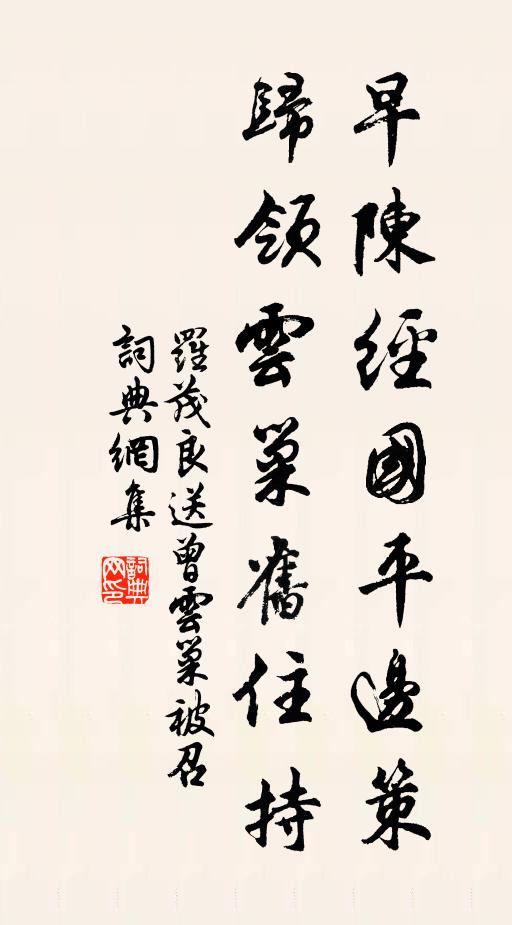 早陳經國平邊策
歸領雲巢舊住持
羅茂良送曾雲巢被召
詞典網集
詞典网印